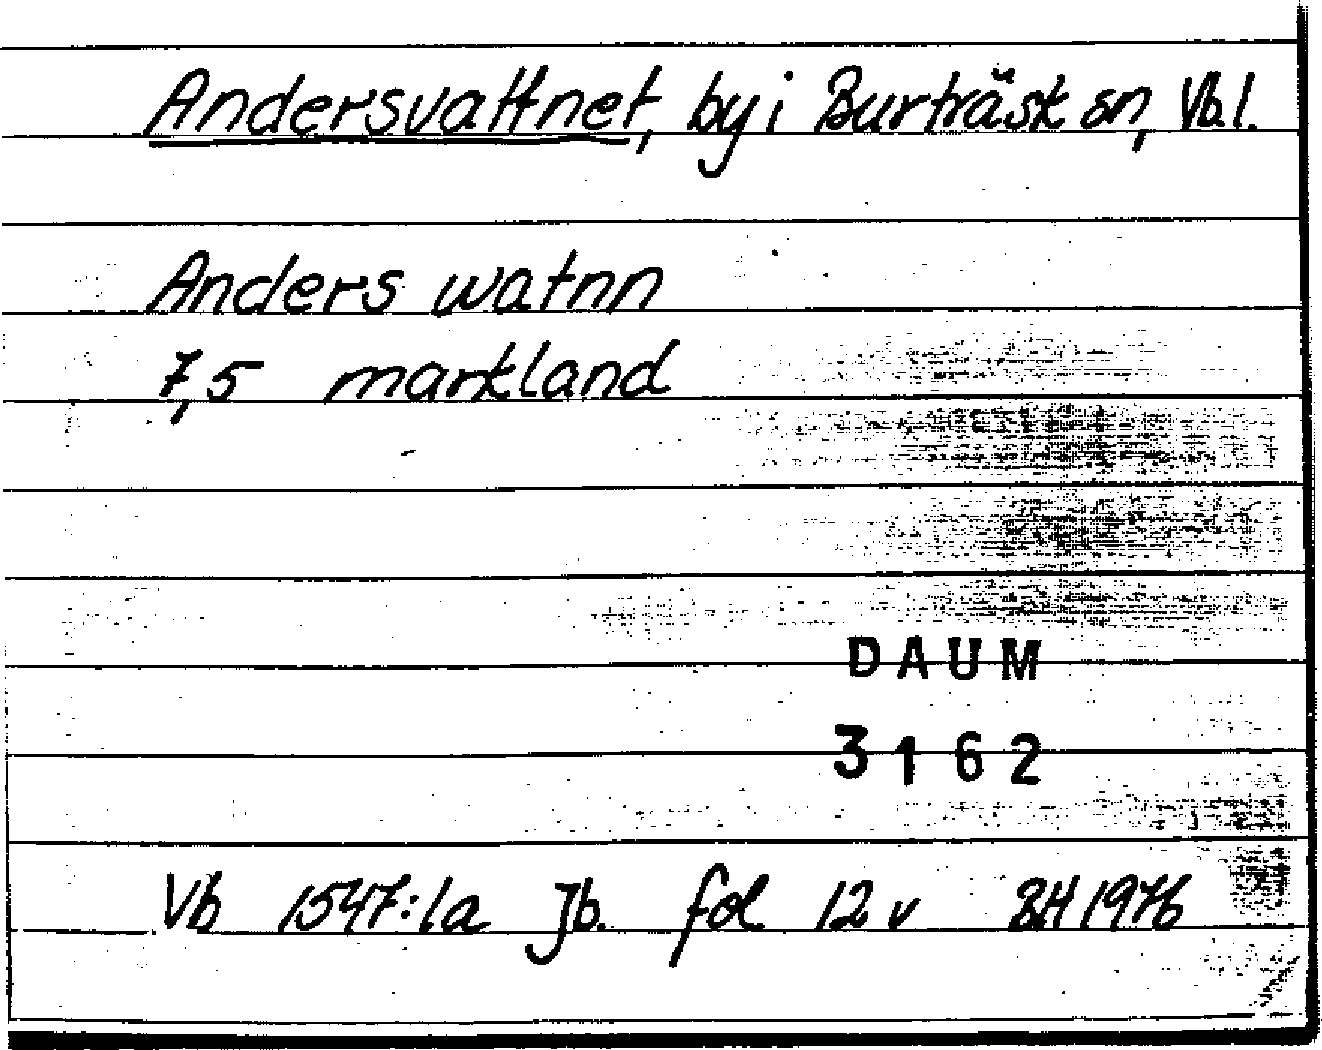 Andersvattnet, by i Burträsk sn, Vb. l.
Anders watnn
7,5 markland
DAUM
3162
Vb 1547:1a Jb. fol 12 v BH 1976